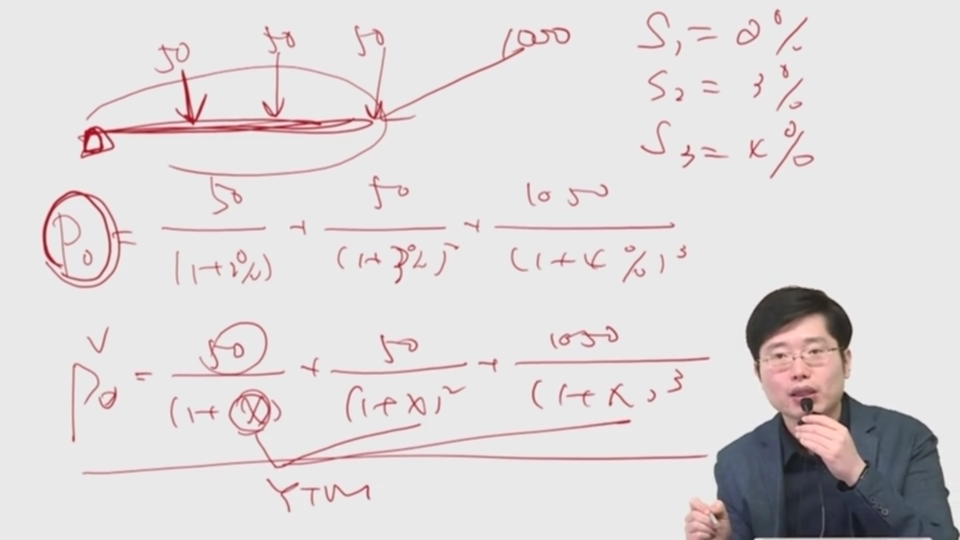 50 50 50 1000
S₁ = 2%
S₂ = 3%
S₃ = 4%
P₀ = 50/(1+2%) + 50/(1+3%)² + 1050/(1+4%)³
P₀ = 50/(1+x) + 50/(1+x)² + 1050/(1+x)³
YTM